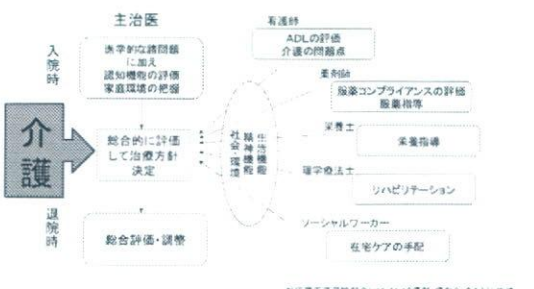 主治医
入院時
医学的な諸問題
に加え
認知機能の評価
家庭環境の把握
介護
総合的に評価
して治療方針
決定
退院時
総合評価・調整
生活機能
精神機能
社会・環境
看護師
ADLの評価
介護の問題点
薬剤師
服薬コンプライアンスの評価
服薬指導
栄養士
栄養指導
理学療法士
リハビリテーション
ソーシャルワーカー
在宅ケアの手配